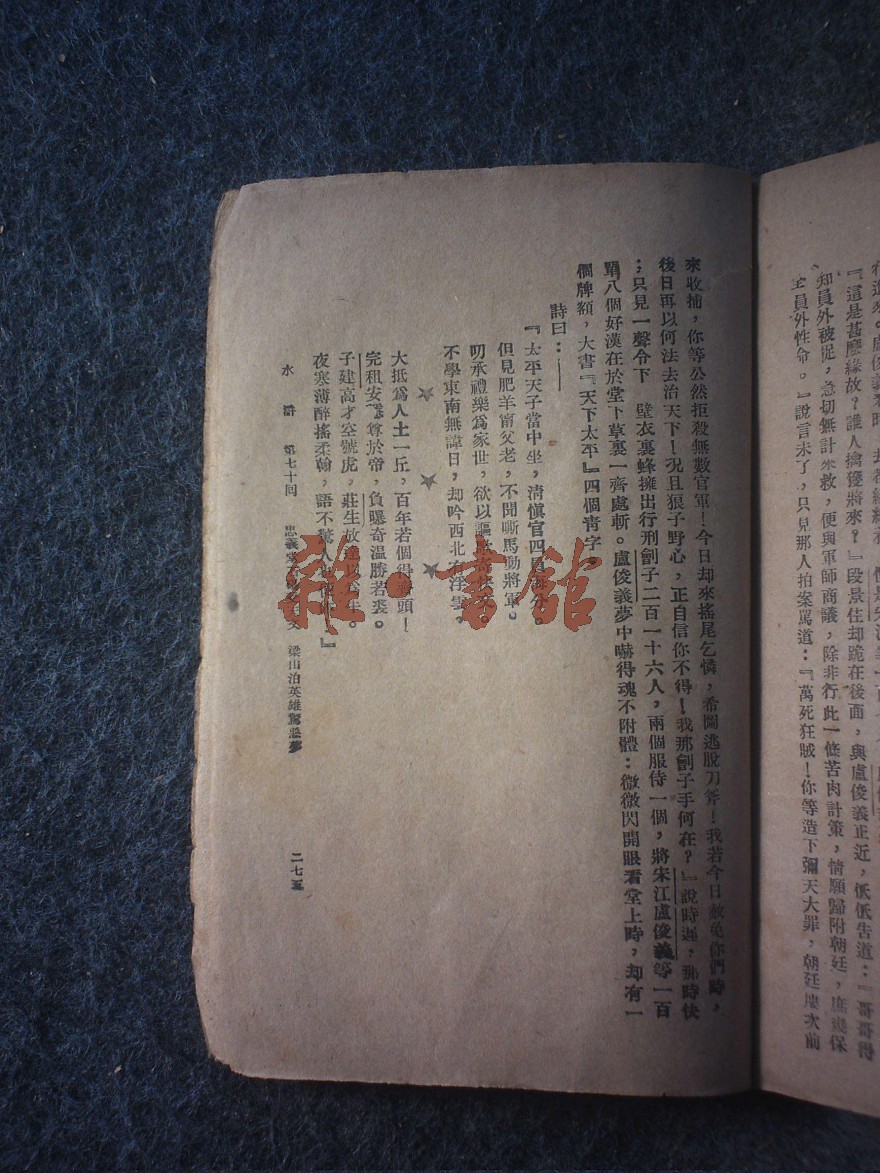 『這是甚麼緣故？誰人擒獲將來？』段景住却跪在後面，與盧俊義正近，低低告道：『哥哥得
知員外被捉，急切無計來救，便與軍師商議，除非行此一條苦肉計策，情願歸附朝廷，庶幾保
全員外性命。』說言未了，只見那人拍案罵道：『萬死狂賊！你等造下彌天大罪，朝廷屢次前
來收捕，你等公然拒殺無數官軍！今日却來搖尾乞憐，希圖逃脫刀斧！我若今日赦免你們時，
後日再以何法去治天下！况且狼子野心，正自信你不得！我那劊子手何在？』說時遲，那時快
；只見一聲令下 壁衣裏蜂擁出行刑劊子二百一十六人，兩個服侍一個，將宋江盧俊義等一百
單八個好漢在於堂下草裏一齊處斬。盧俊義夢中嚇得魂不附體；微微閃開眼看堂上時，却有一
個牌額，大書『天下太平』四個青字。
詩曰：——
『太平天子當中坐，清愼官四
但見肥羊甯父老，不聞嘶馬動將軍。
叨承禮樂爲家世，欲以謳
不學東南無諱日，却吟西北有浮雲。
大抵爲人土一丘，百年若個得齊頭！
完租安 尊於帝，負曝奇溫勝若裘。
子建高才空號虎，莊生放
夜寒薄醉搖柔翰，語不驚人 』
水滸 第七十回 忠義堂 梁山泊英雄驚惡夢
二七五
雜·書館